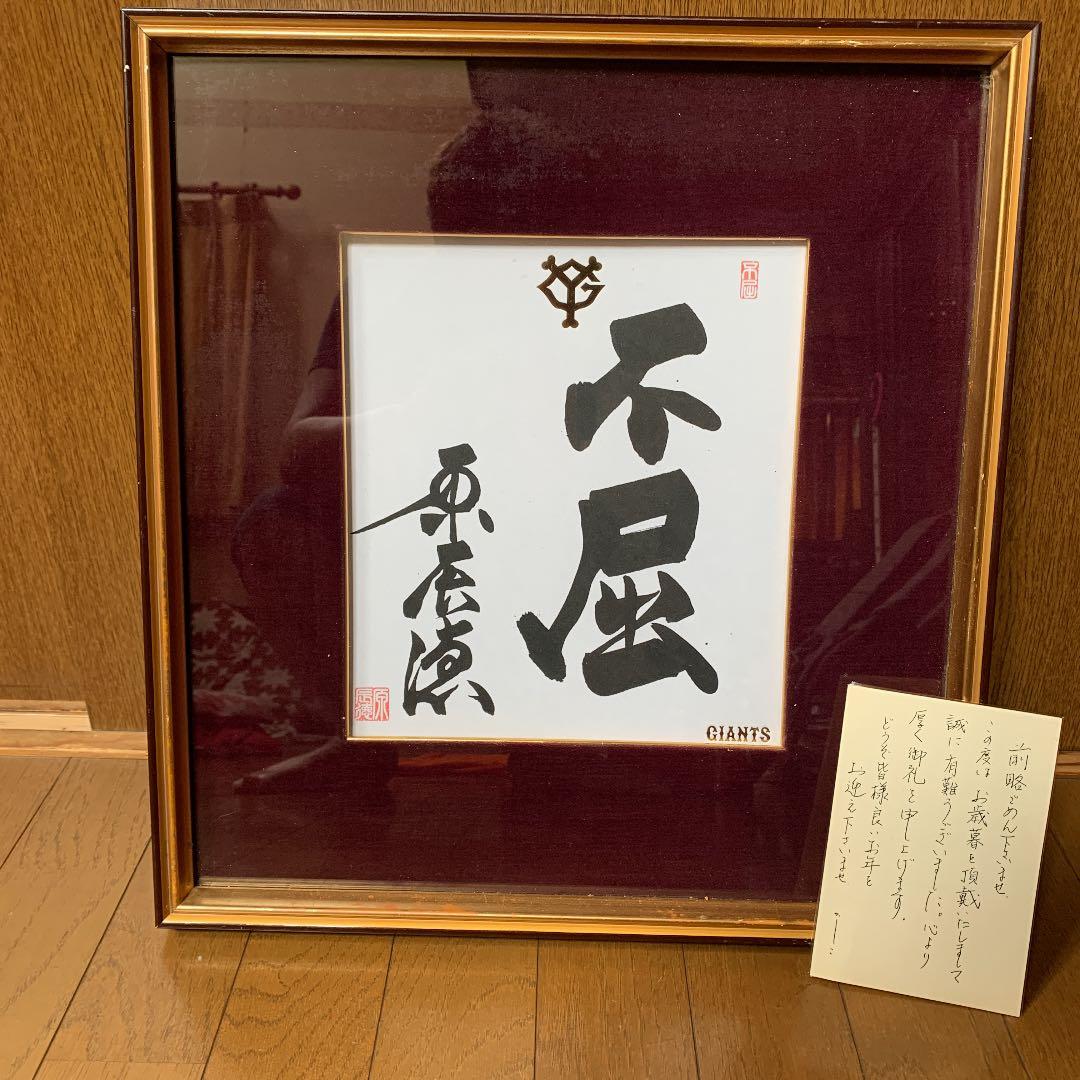 不屈
不屈
原辰徳
原辰徳
GIANTS
前略ごめん下さいませ
この度は お歳暮を頂戴いたしまして
誠に有難うございました。心より
厚く御礼を申し上げます。
どうぞ皆様良いお年を
お迎え下さいませ